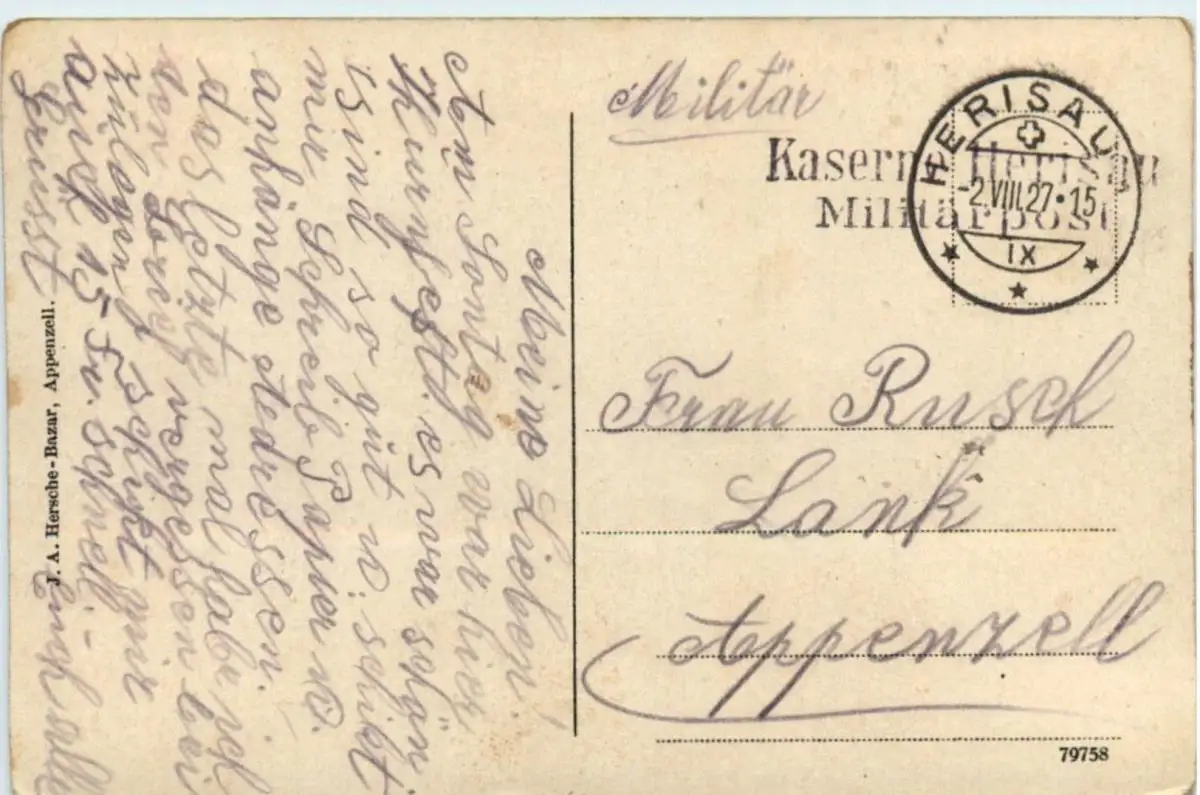 Meine Lieben!
Am Sontag war hier
Turnfest. es war schön
Sind so gut u. schikt
mir Schreib Papier u.
anhänge Adressen.
das letzte mal habe ich
den Brief vergessen bei
zulegen. Schikt mir
auch 15 Fr. Schnell -
Grüsst Euch alle
J. A. Hersche-Bazar, Appenzell.
Militär
Kaserne Herisau
Militärpost
HERISAU
-2.VIII.27·15
IX
Frau Rusch
Lank
Appenzell
79758